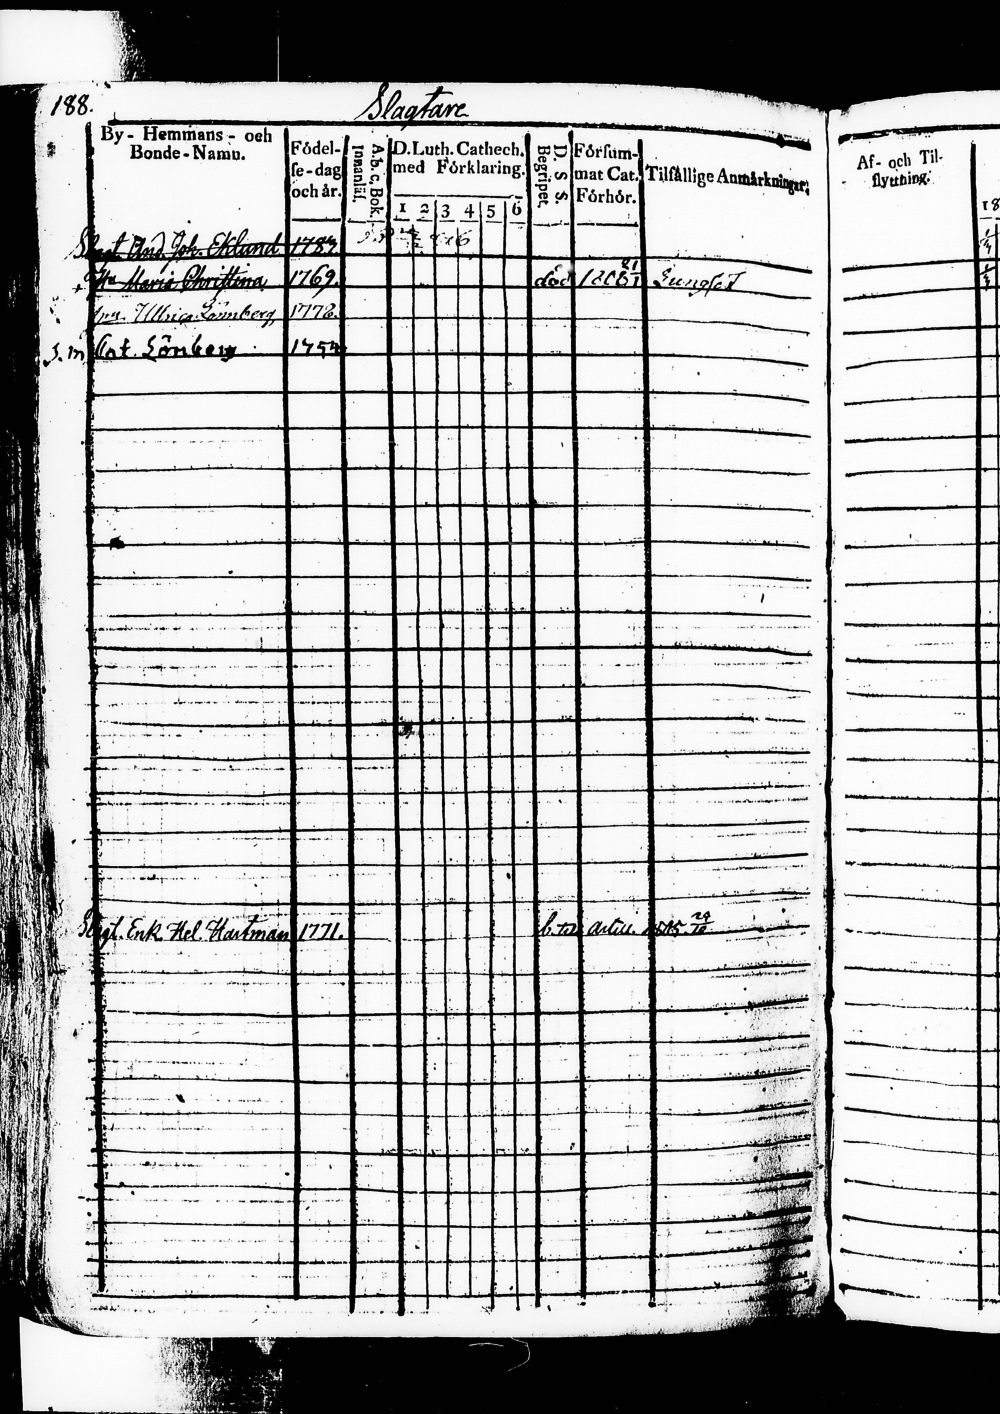 188.
Slagtare
By- Hemmans- och
Bonde-Namn.
Födel-
se-dag
och år.
A.b.c. Bok.
Innanläs.
D. Luth. Cathech.
med Förklaring.
1 2 3 4 5 6
D. S. S.
Begripet.
Försum-
mat Cat.
Förhör.
Tilfällige Anmärkningar;
Af- och Til-
flyttning.
18
Slagt. And. Joh. Eklund 1783
Maria Christina 1769. död 1808 Lungsot
Ulrica Lönnberg 1778.
S. m. Cat. Lönberg 1754
Slagt. Enk. Hel. Hartman 1771. b. til Artill. 1815 24/10